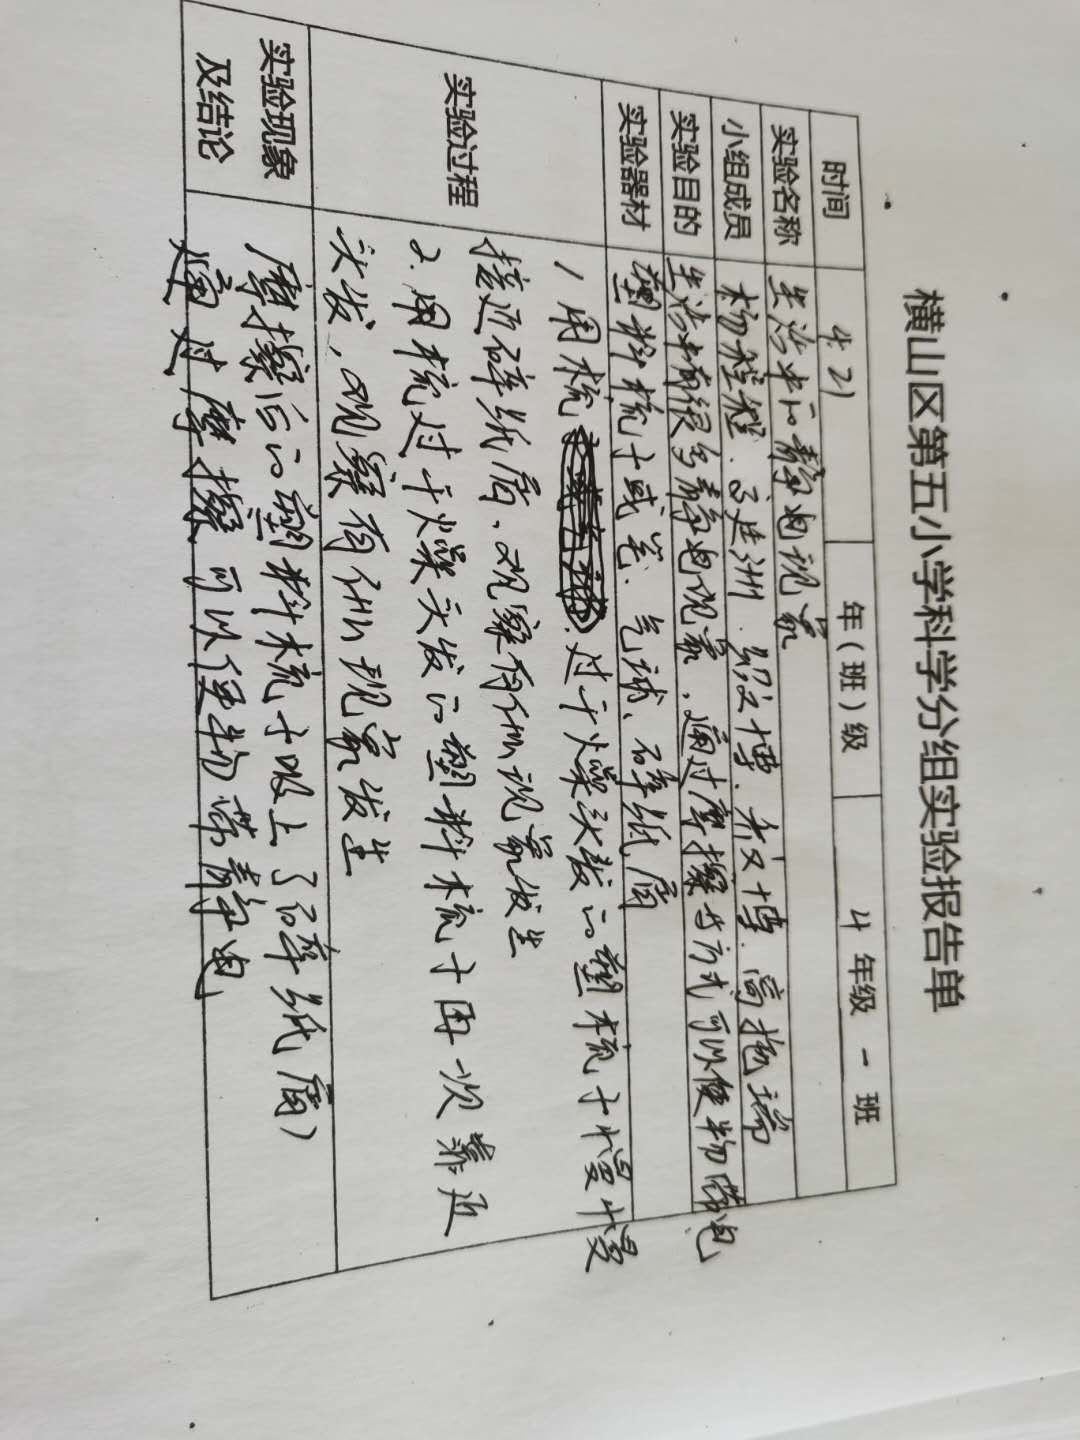 横山区第五小学科学分组实验报告单
时间 4.21 年(班)级 4 年级 一 班
实验名称 生活中的静电现象
小组成员 杨程程. 博. 博. 高艳瑞
实验目的 生活中有很多静电现象,通过摩擦方式可以使物带电
实验器材 塑料梳子或笔. 气球、碎纸屑
实验过程 1 用梳 过干燥头发的塑梳子慢慢
接近碎纸屑、观察有何现象发生
2. 用梳过干燥头发的塑料梳子再一次靠近
头发,观察有何现象发生
实验现象
及结论 摩擦后的塑料梳子吸上了碎纸屑)
通过摩擦可以使物带静电